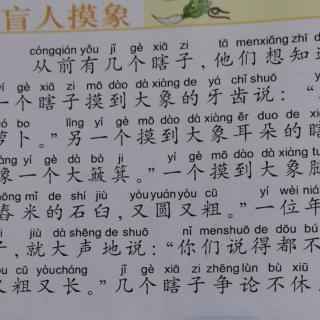 盲人摸象
cóngqián yǒu jǐ gè xiā zi tā menxiǎng zhī d
从前有几个瞎子，他们想知道
yí gè xiā zi mō dào dà xiàng de yá chǐ shuō
一个瞎子摸到大象的牙齿说：“
ó bo lìng yí gè mō dào dà xiàng ěr duo de xi
萝卜。”另一个摸到大象耳朵的瞎
àng yí gè dà bò ji yí gè mō dào dà xiàng tu
像一个大簸箕。”一个摸到大象腿
hōng mǐ de shí jiù yòu yuán yòu cū yí wèi niá
舂米的石臼，又圆又粗。”一位年
zi jiù dà shēng de shuō nǐ menshuō de dōu bú
子，就大声地说：“你们说得都不
òu cū yòucháng jǐ gè xiā zi zhēng lùn bù xiū
又粗又长。”几个瞎子争论不休